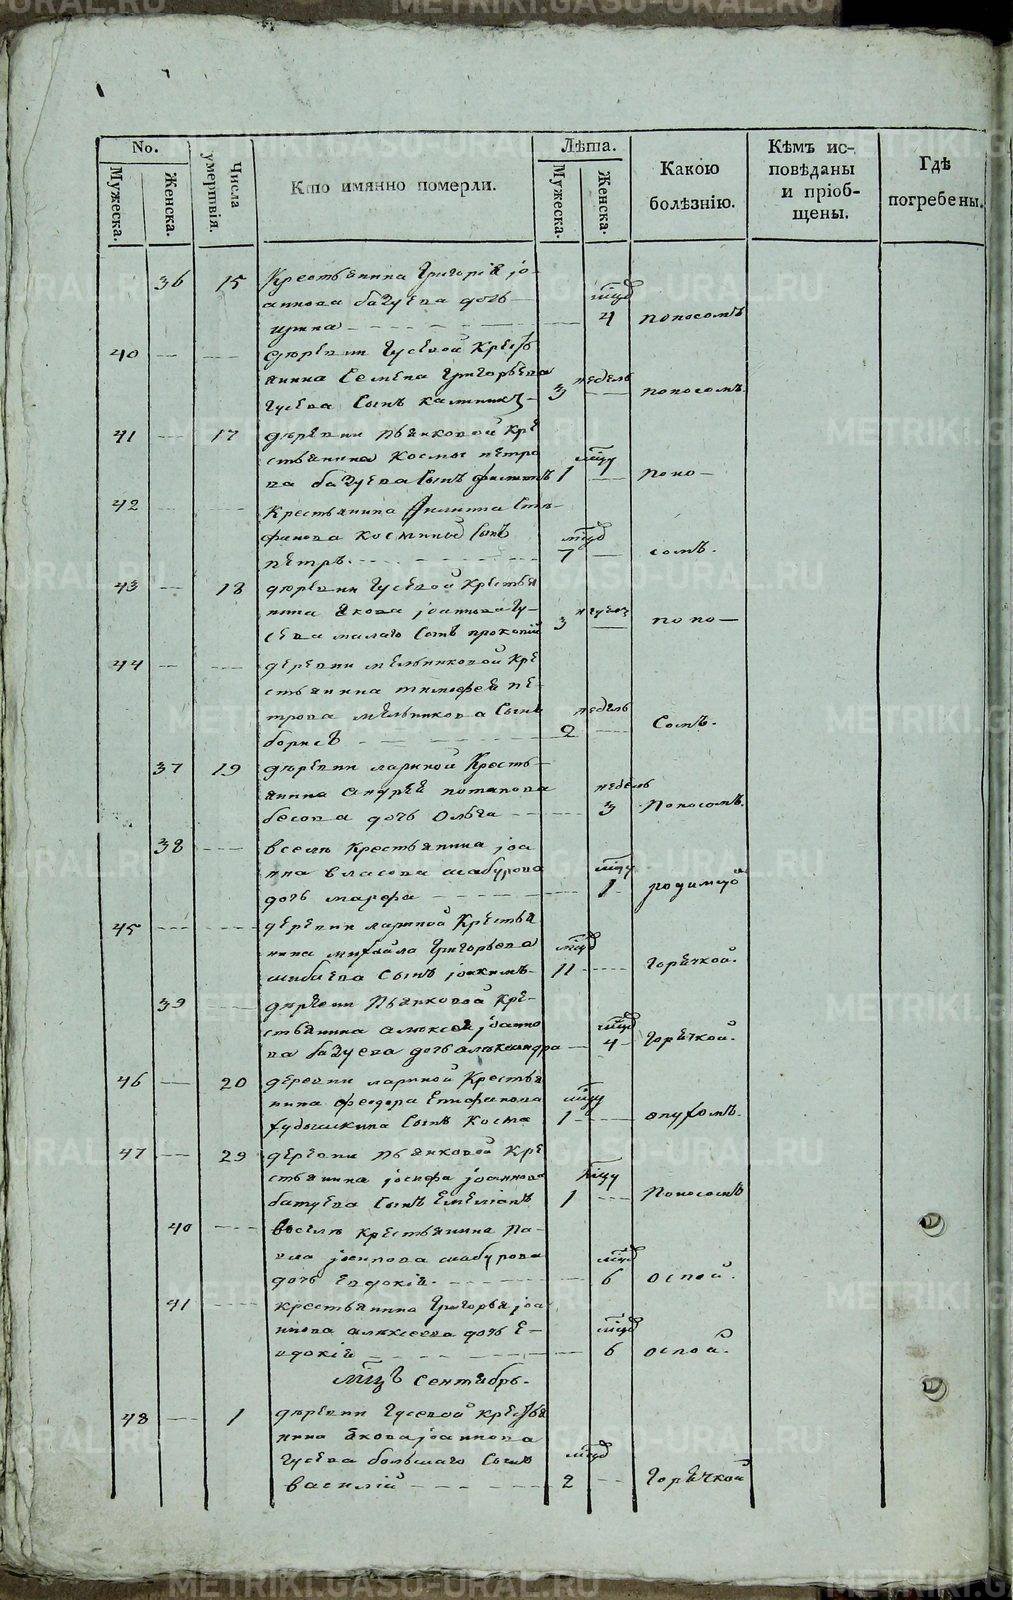 No.
Мужеска.
Женска.
Числа умертвія.
Кто имянно померли.
Лѣта.
Мужеска.
Женска.
Какою болѣзнію.
Кѣмъ исповѣданы и пріобщены.
Гдѣ погребены.
36 15 Крестьянина Григорія іо-
аннова дочь мцд
ирина 4 поносомъ
40 деревни Гусевой Кресть
янина Семена Григорьева недель
Гусева Сынъ каллиникъ 3 поносомъ
41 17 деревни Пьянковой Кре
стьянина Космы петро мцу
ва Сынъ филиппъ 1 поно-
42 Крестьянина Филиппа Сте-
фанова Костина Сынъ мцд
петръ 7 сомъ.
43 18 деревни Гусевой Крестья
нина Якова іоаннова Гу- недел
сева малаго Сынъ прокопій 3 поно-
44 деревни мельниковой Кре
стьянина тимофея пе-
трова мельникова Сынъ недель
борисъ 2 Сомъ.
37 19 деревни лариной Кресть-
янина Андрея потапова недель
бесова дочь Ольга 3 Поносомъ.
38 всемъ крестьянина іоа
нна власова шабурова мцу
дочь марфа 1 родимцо
45 деревни лариной Крестья
нина михаила Григорьева мцд
Сынъ іоакимъ 11 Горячкой.
39 деревни Пьянковой Кре-
стьянина алексея іоанно мцд
ва дочь александра 4 Горячкой.
46 20 деревни лариной Крестья
нина феодора Епифанова мцу
худышкина Сынъ Косма 1 опухомъ.
47 29 деревни Пьянковой Кре
стьянина іосифа іоаннова мцу
батуева Сынъ Емеліанъ 1 Поносомъ
40 Всемъ крестьянина Па-
вла шабурова мцд
дочь Евдокія. 6 оспой.
41 крестьянина Григорья іоа
ннова алексеева дочь Е- мцд
вдокія 6 оспой.
мцъ Сентябрь.
48 1 деревни Гусевой крестья
нина Якова іоаннова
Гусева большаго Сынъ мцд
василій 2 Горячкой
METRIKI.GASO-URAL.RU